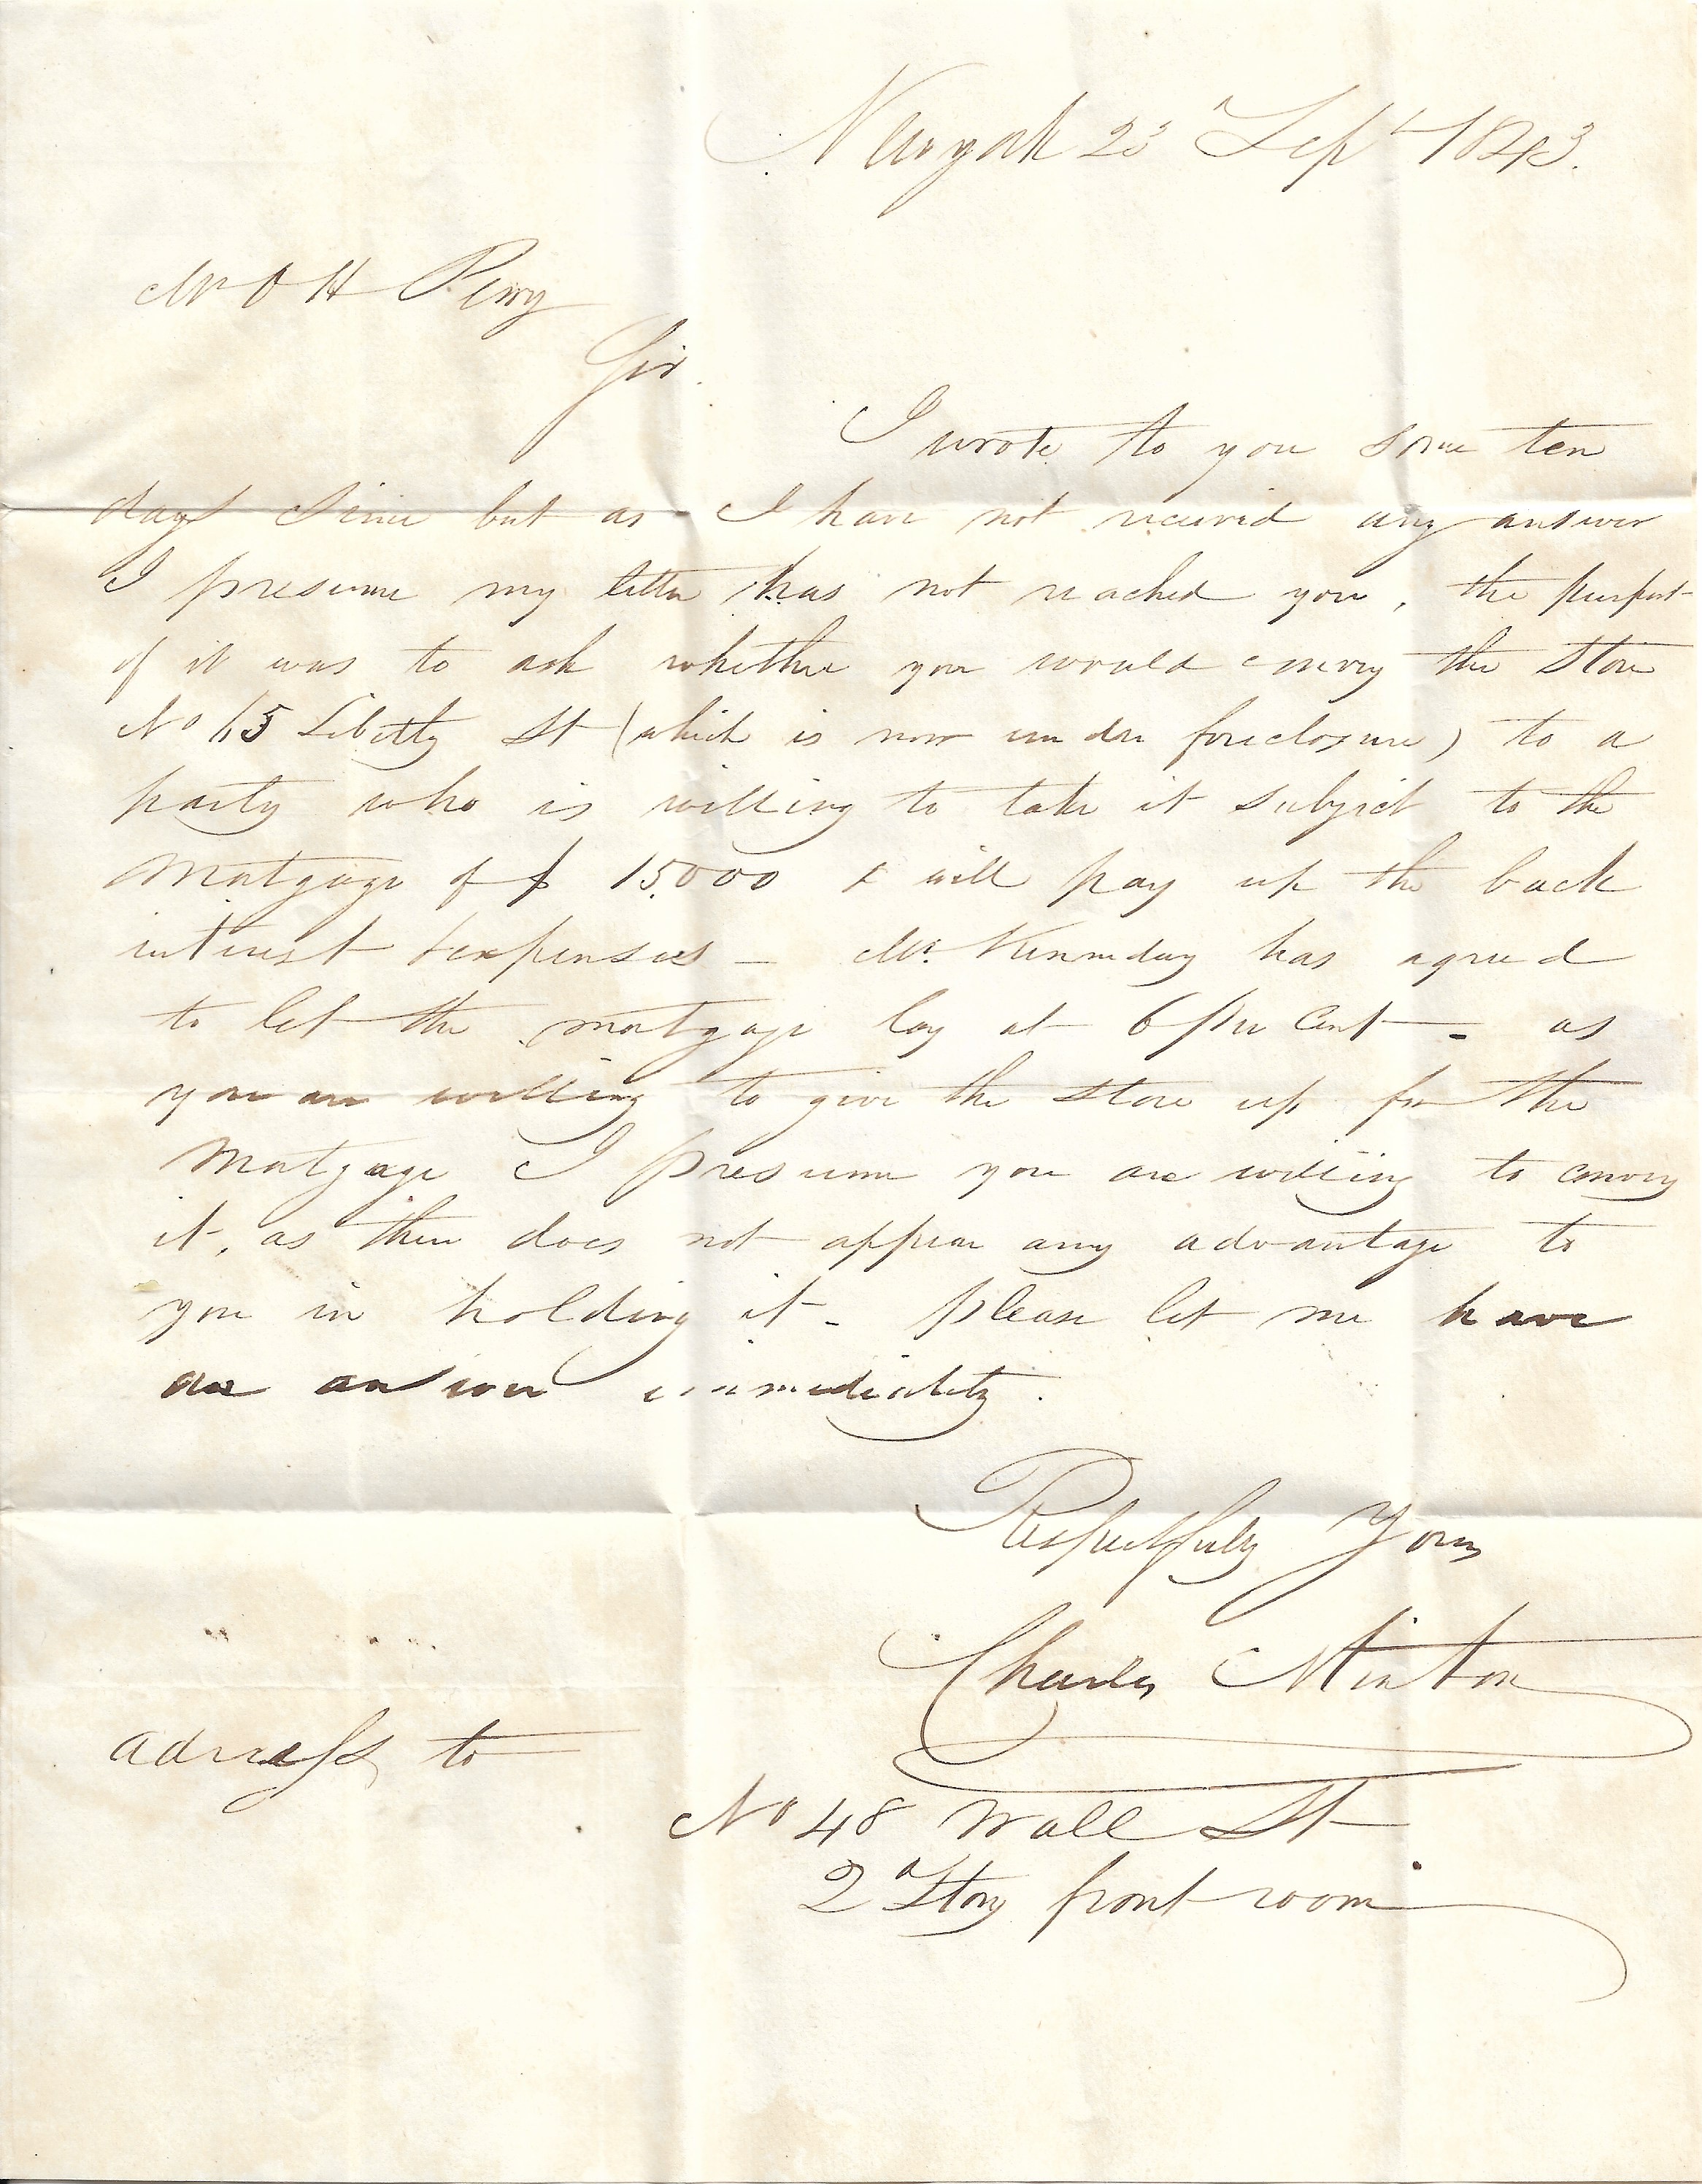 Newyork 23 Sept 1843.
Mr O H Perry
Sir.
I wrote to you some ten
days since but as I have not received any answer
I presume my letter has not reached you, the purport
of it was to ask whether you would convey the Store
No 65 Liberty St (which is now under foreclosure) to a
party who is willing to take it subject to the
Mortgage of $ 15,000 & will pay up the back
interest & expenses - Mr. Kenneday has agreed
to let the mortgage lay at 6 per Cent - as
you are willing to give the store up for the
Mortgage I presume you are willing to convey
it, as there does not appear any advantage to
you in holding it - please let me have
an answer immediately.
Respectfully Yours
Charles Minton
adress to
No 48 Wall St
2d Story front room